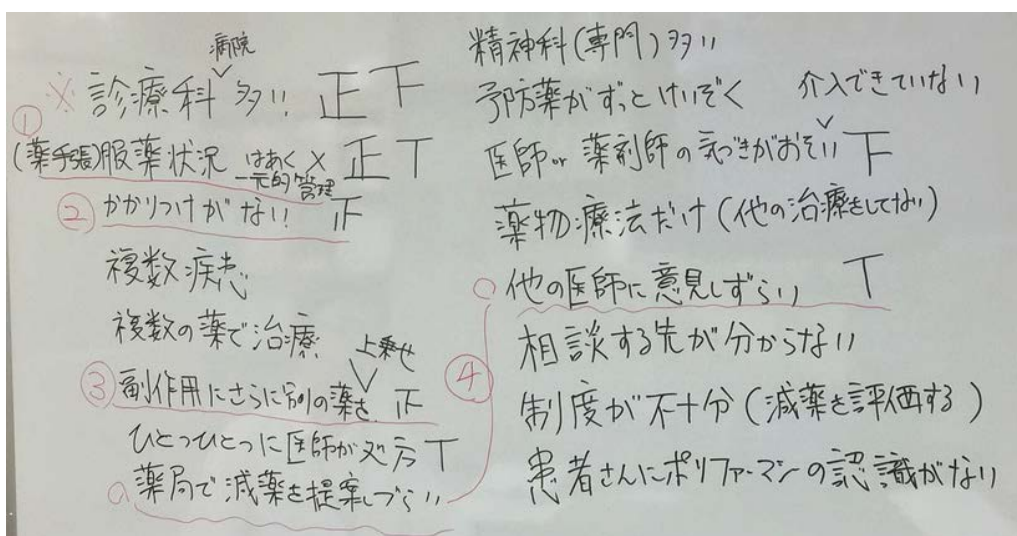 病院
① ※ 診療科 多い 正 下
(薬手張)服薬状況 はあく × 正 T
一元的管理
② かかりつけがない! 正
複数疾患
複数の薬で治療
上乗せ
③ 副作用にさらに別の薬を 正
ひとつひとつに医師が処方 T
薬局で減薬を提案しづらい
精神科(専門)多い
予防薬がずっとけいぞく 介入できていない
医師or薬剤師の気づきがおそい 下
薬物療法だけ(他の治療をしてない)
④ 他の医師に意見しずらい T
相談する先が分からない
制度が不十分(減薬を評価する)
患者さんにポリファーマシーの認識がない